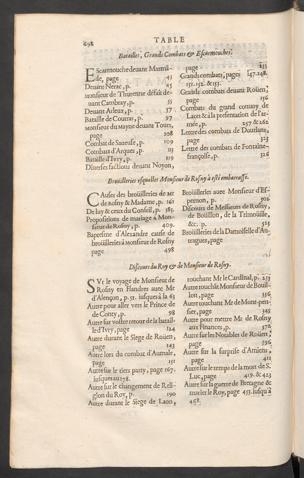 698 TABLE
Batailles, Grands Combats & Escarmouches.
EScarmouche deuant Marmande, page 45
Deuant Nerac, p. 45
Monsieur de Thurenne défait deuant Cambray, p. 55
Deuant Arleux, p. 57
Bataille de Coutras, p. 97
Monsieur du Mayne deuant Tours, page 108
Combat de Saueuse, p. 109
Combats d'Arques, p. 113
Bataille d'Ivry, p. 119
Diuerses factions deuant Noyon,
page 235
Grands combats, pages 147. 148.
151. 152. & 153
Grands combats deuant Roüen,
page 235
Combats du grand conuoy de
Laon & à la presentation de l'armée, p. 257 & 262
Lettre des combats de Dourlans,
page 325
Lettre des combats de Fontaine-
françoise, p. 326
Broüilleries esquelles Monsieur de Rosny a esté embarassé.
CAuses des broüilleries de Mr
de Rosny & Madame, p. 161
De luy & ceux du Conseil, p. 385
Propositions de mariage à Monsieur de Rosny, p. 409
Baptesme d'Alexandre cause de
broüilleries à monsieur de Rosny
page 498
Broüilleries auec Monsieur d'Espernon, p. 502
Discours de Messieurs de Rosny,
de Boüillon, de la Trimoüille,
&c. p. 535
Broüilleries de la Damoiselle d'Antragues, page
Discours du Roy & de Monsieur de Rosny.
SVr le voyage de Monsieur de
Rosny en Flandres auec Mr
d'Alençon, p. 51. iusques à la 63
Autre pour aller vers le Prince de
de Conty, p. 98
Autre sur vostre retour de la bataille d'Ivry, page 124
Autre durant le Siege de Roüen,
page 143
Autre lors du combat d'Aumale,
page 151
Autre sur le tiers party, page 167.
iusques aux 178.
Autre sur le changement de Religion du Roy, p. 190
Autre durant le Siege de Laon,
touchant Mr le Cardinal, p. 253
Autre touchāt Monsieur de Boüillon, page 256
Autre touchant Mr de Montpensier, page 294
Autre pour mettre Mr de Rosny
aux Finances, p. 372
Autre sur les Notables de Roüen,
page 356
Autre sur la surprise d'Amiens,
page 411
Autre sur le temps de la mort de S.
Luc, page 419. & 423
Autre sur la guerre de Bretagne &
marier le Roy, page 453. iusqu'à
458.